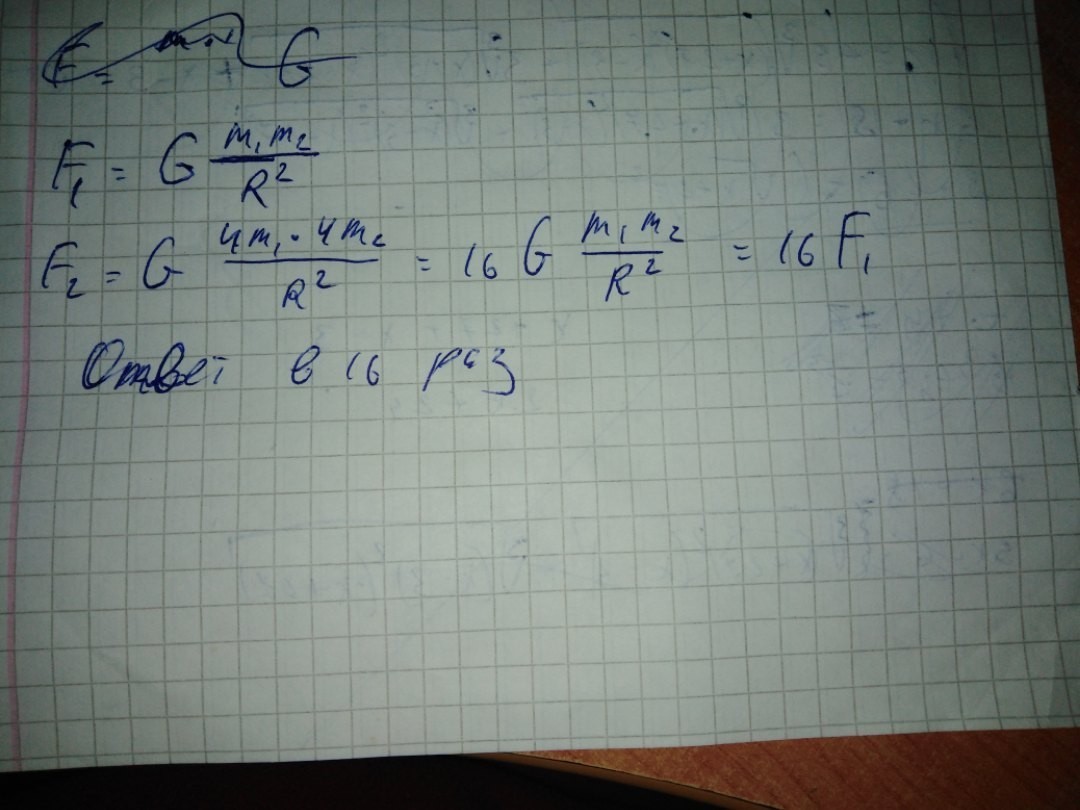 F = G
F₁ = G m₁m₂/R²
F₂ = G 4m₁·4m₂/R² = 16 G m₁m₂/R² = 16 F₁
Ответ в 16 раз